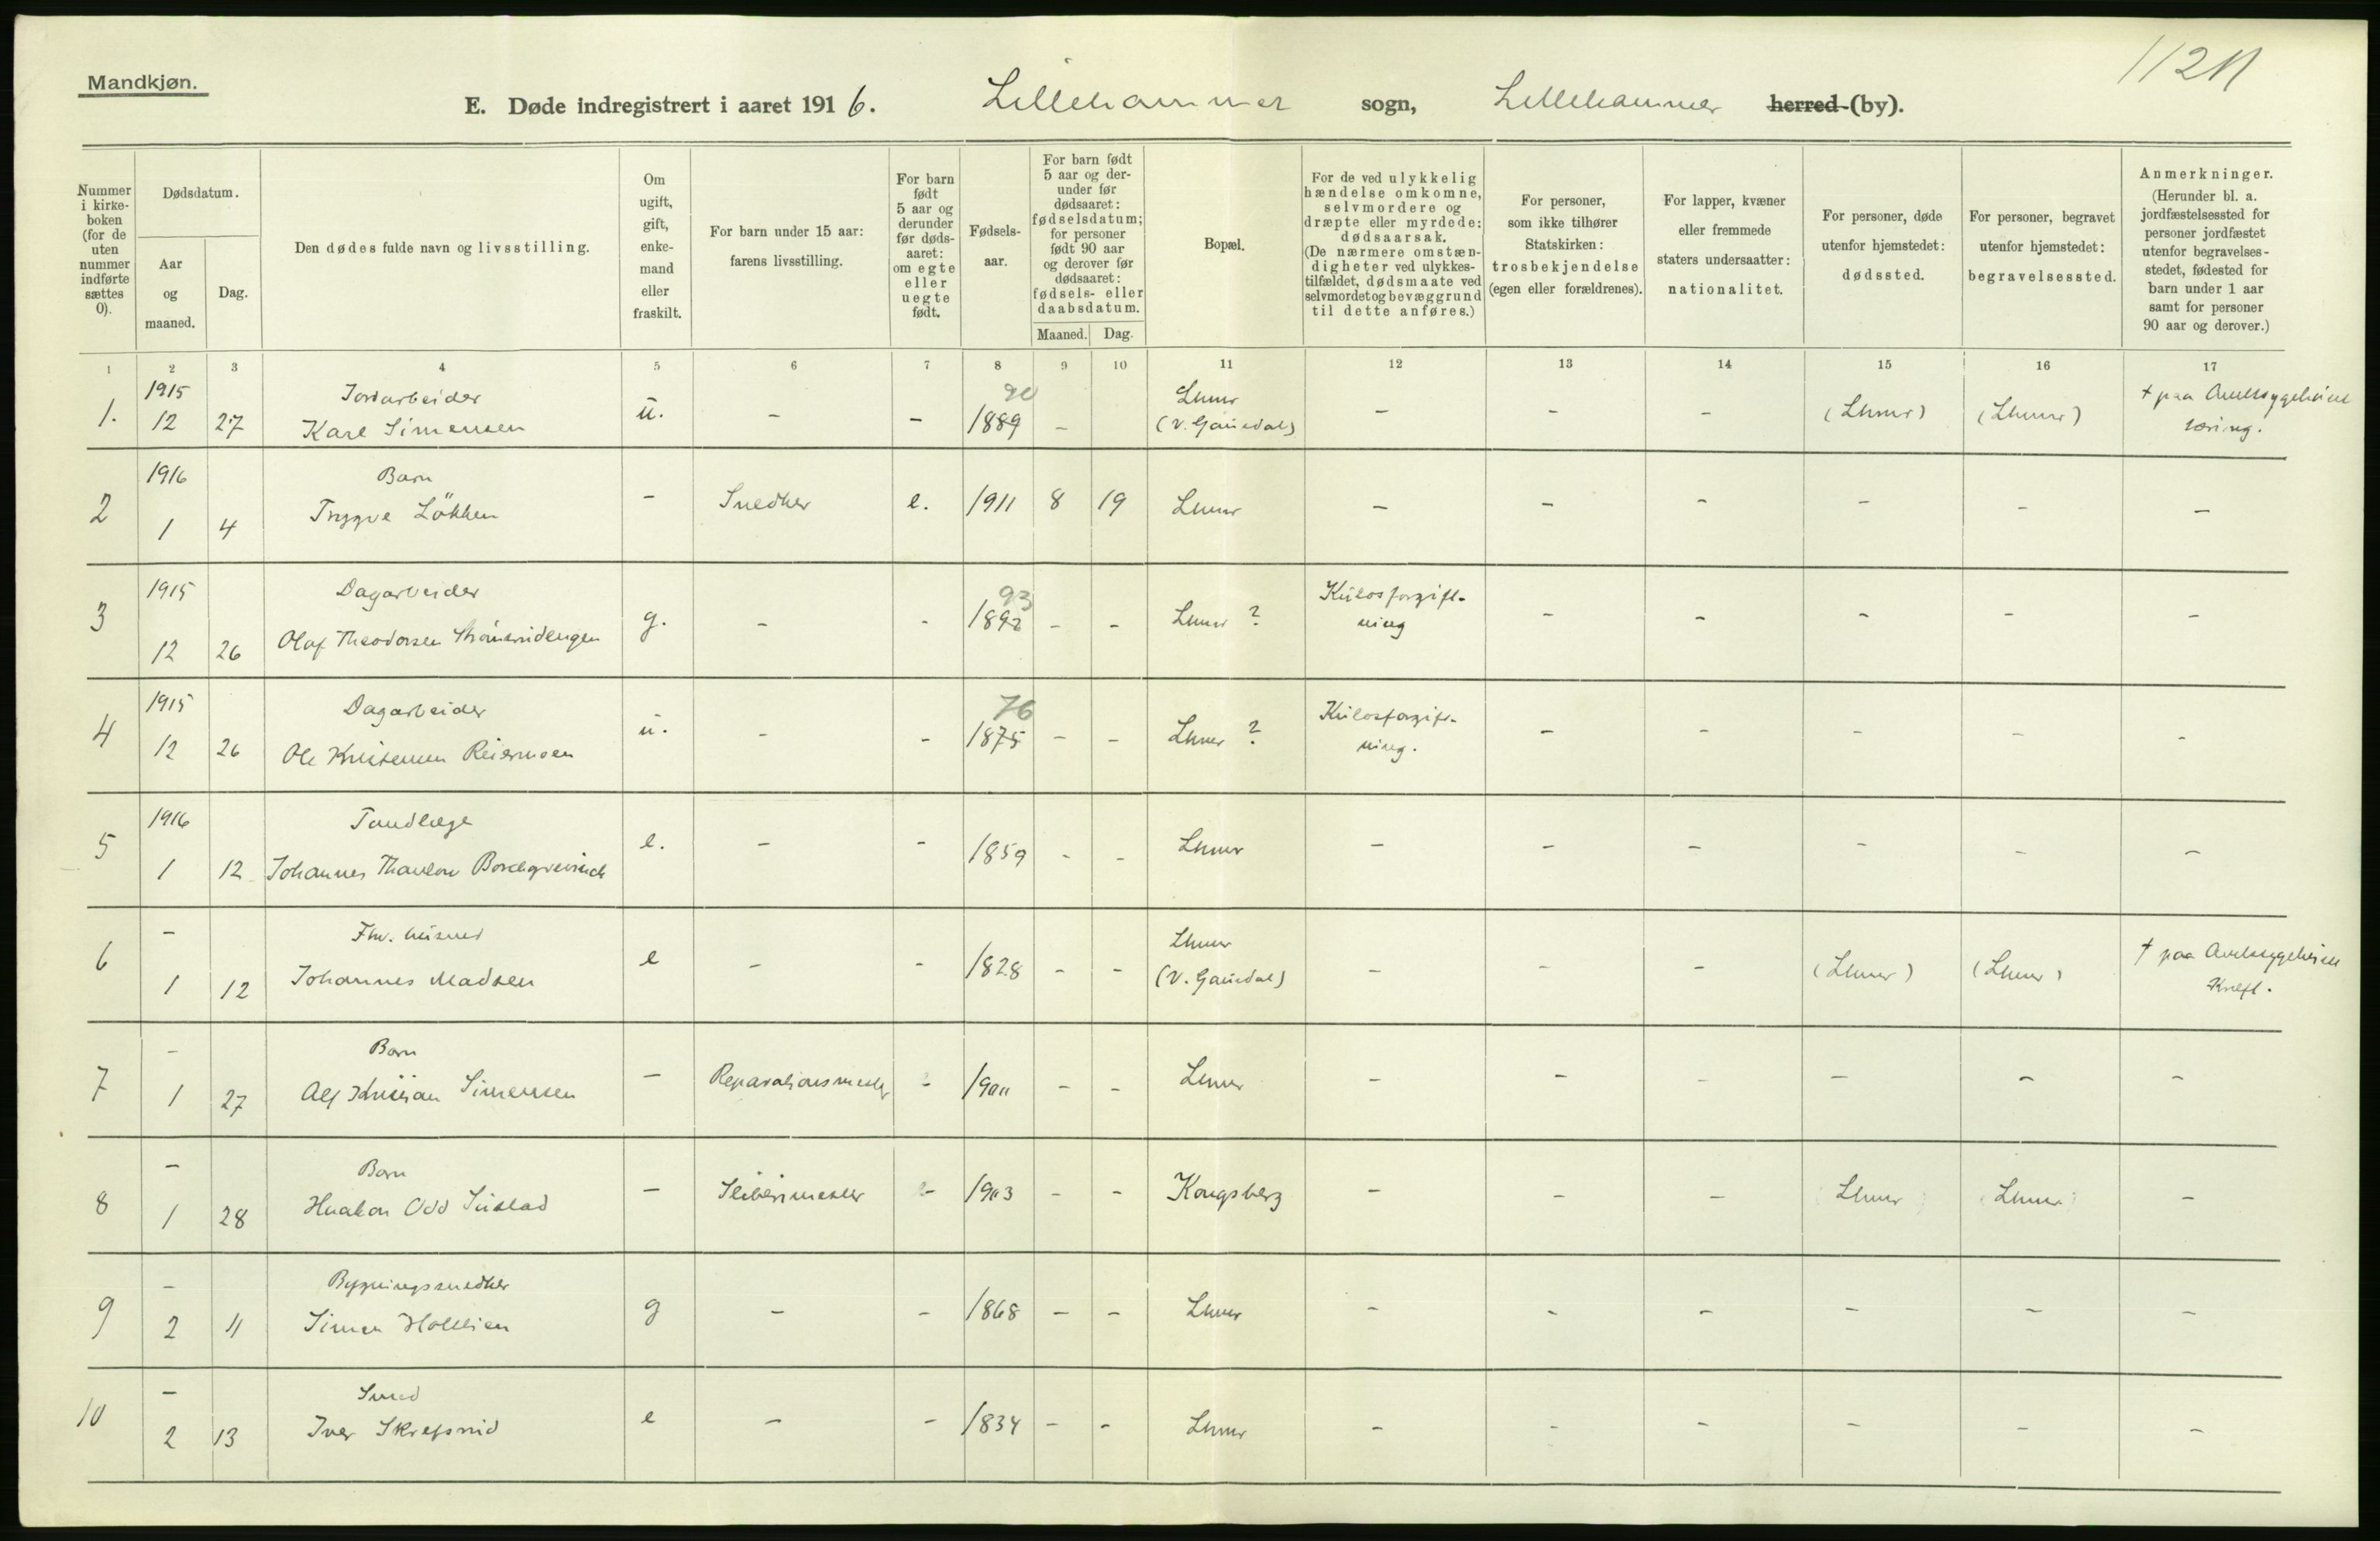 Mandkjøn.
112
E. Døde indregistrert i aaret 1916. Lillehammer sogn, Lillehammer herred (by).
Nummer i kirke-boken (for de uten nummer indførte sættes 0).
Dødsdatum.
Aar og maaned.
Dag.
Den dødes fulde navn og livsstilling.
Om ugift, gift, enke-mand eller fraskilt.
For barn under 15 aar: farens livsstilling.
For barn født 5 aar og derunder før døds-aaret: om egte eller uegte født.
Fødsels-aar.
For barn født 5 aar og der-under før dødsaaret: fødselsdatum; for personer født 90 aar og derover før dødsaaret: fødsels- eller daabsdatum.
Maaned. Dag.
Bopæl.
For de ved ulykkelig hændelse omkomne, selvmordere og dræpte eller myrdede: dødsaarsak. (De nærmere omstæn-digheter ved ulykkes-tilfældet, dødsmaate ved selvmordet og bevæggrund til dette anføres.)
For personer, som ikke tilhører Statskirken: trosbekjendelse (egen eller forældrenes).
For lapper, kvæner eller fremmede staters undersaatter: nationalitet.
For personer, døde utenfor hjemstedet: dødssted.
For personer, begravet utenfor hjemstedet: begravelsessted.
Anmerkninger. (Herunder bl. a. jordfæstelsessted for personer jordfæstet utenfor begravelses-stedet, fødested for barn under 1 aar samt for personer 90 aar og derover.)
1 2 3 4 5 6 7 8 9 10 11 12 13 14 15 16 17
1915 Jordarbeider 90 Lhmr † paa Amtssygehuset
1. 12 27 Karl Simensen u. - - 1889 - (V. Gausdal) - - - (Lhmr) (Lhmr) tæring.
1916 Barn
2 1 4 Trygve Løkken - Snedker e. 1911 8 19 Lhmr - - - - - -
1915 Dagarbeider 93 Kulosforgift-
3 12 26 Olaf Theodorsen g. - - 1892 - - Lhmr ? ning - - - - -
1915 Dagarbeider 76 Kulosforgift-
4 12 26 Ole Kristensen Reiersmoen u. - - 1875 - - Lhmr ? ning. - - - - -
1916 Tandlæge
5 1 12 Johannes Thaulow Borchgrevinck e. - - 1859 - - Lhmr - - - - - -
- Fhv. husmd Lhmr † paa Amtssygehuset
6 1 12 Johannes Madsen e - - 1828 - - (V. Gausdal) - - - (Lhmr) (Lhmr) Kræft.
- Barn
7 1 27 Alf Kristian Simensen - - - - Lhmr - - - - - -
- Barn
8 1 28 Haakon Odd - - 1903 - - Kongsberg - - - Lhmr Lhmr -
- Bygningssnedker
9 2 11 Simen g - - 1868 - - Lhmr - - - - - -
- Smed
10 2 13 Iver Skrefsrud e - - 1834 - - Lhmr - - - - - -